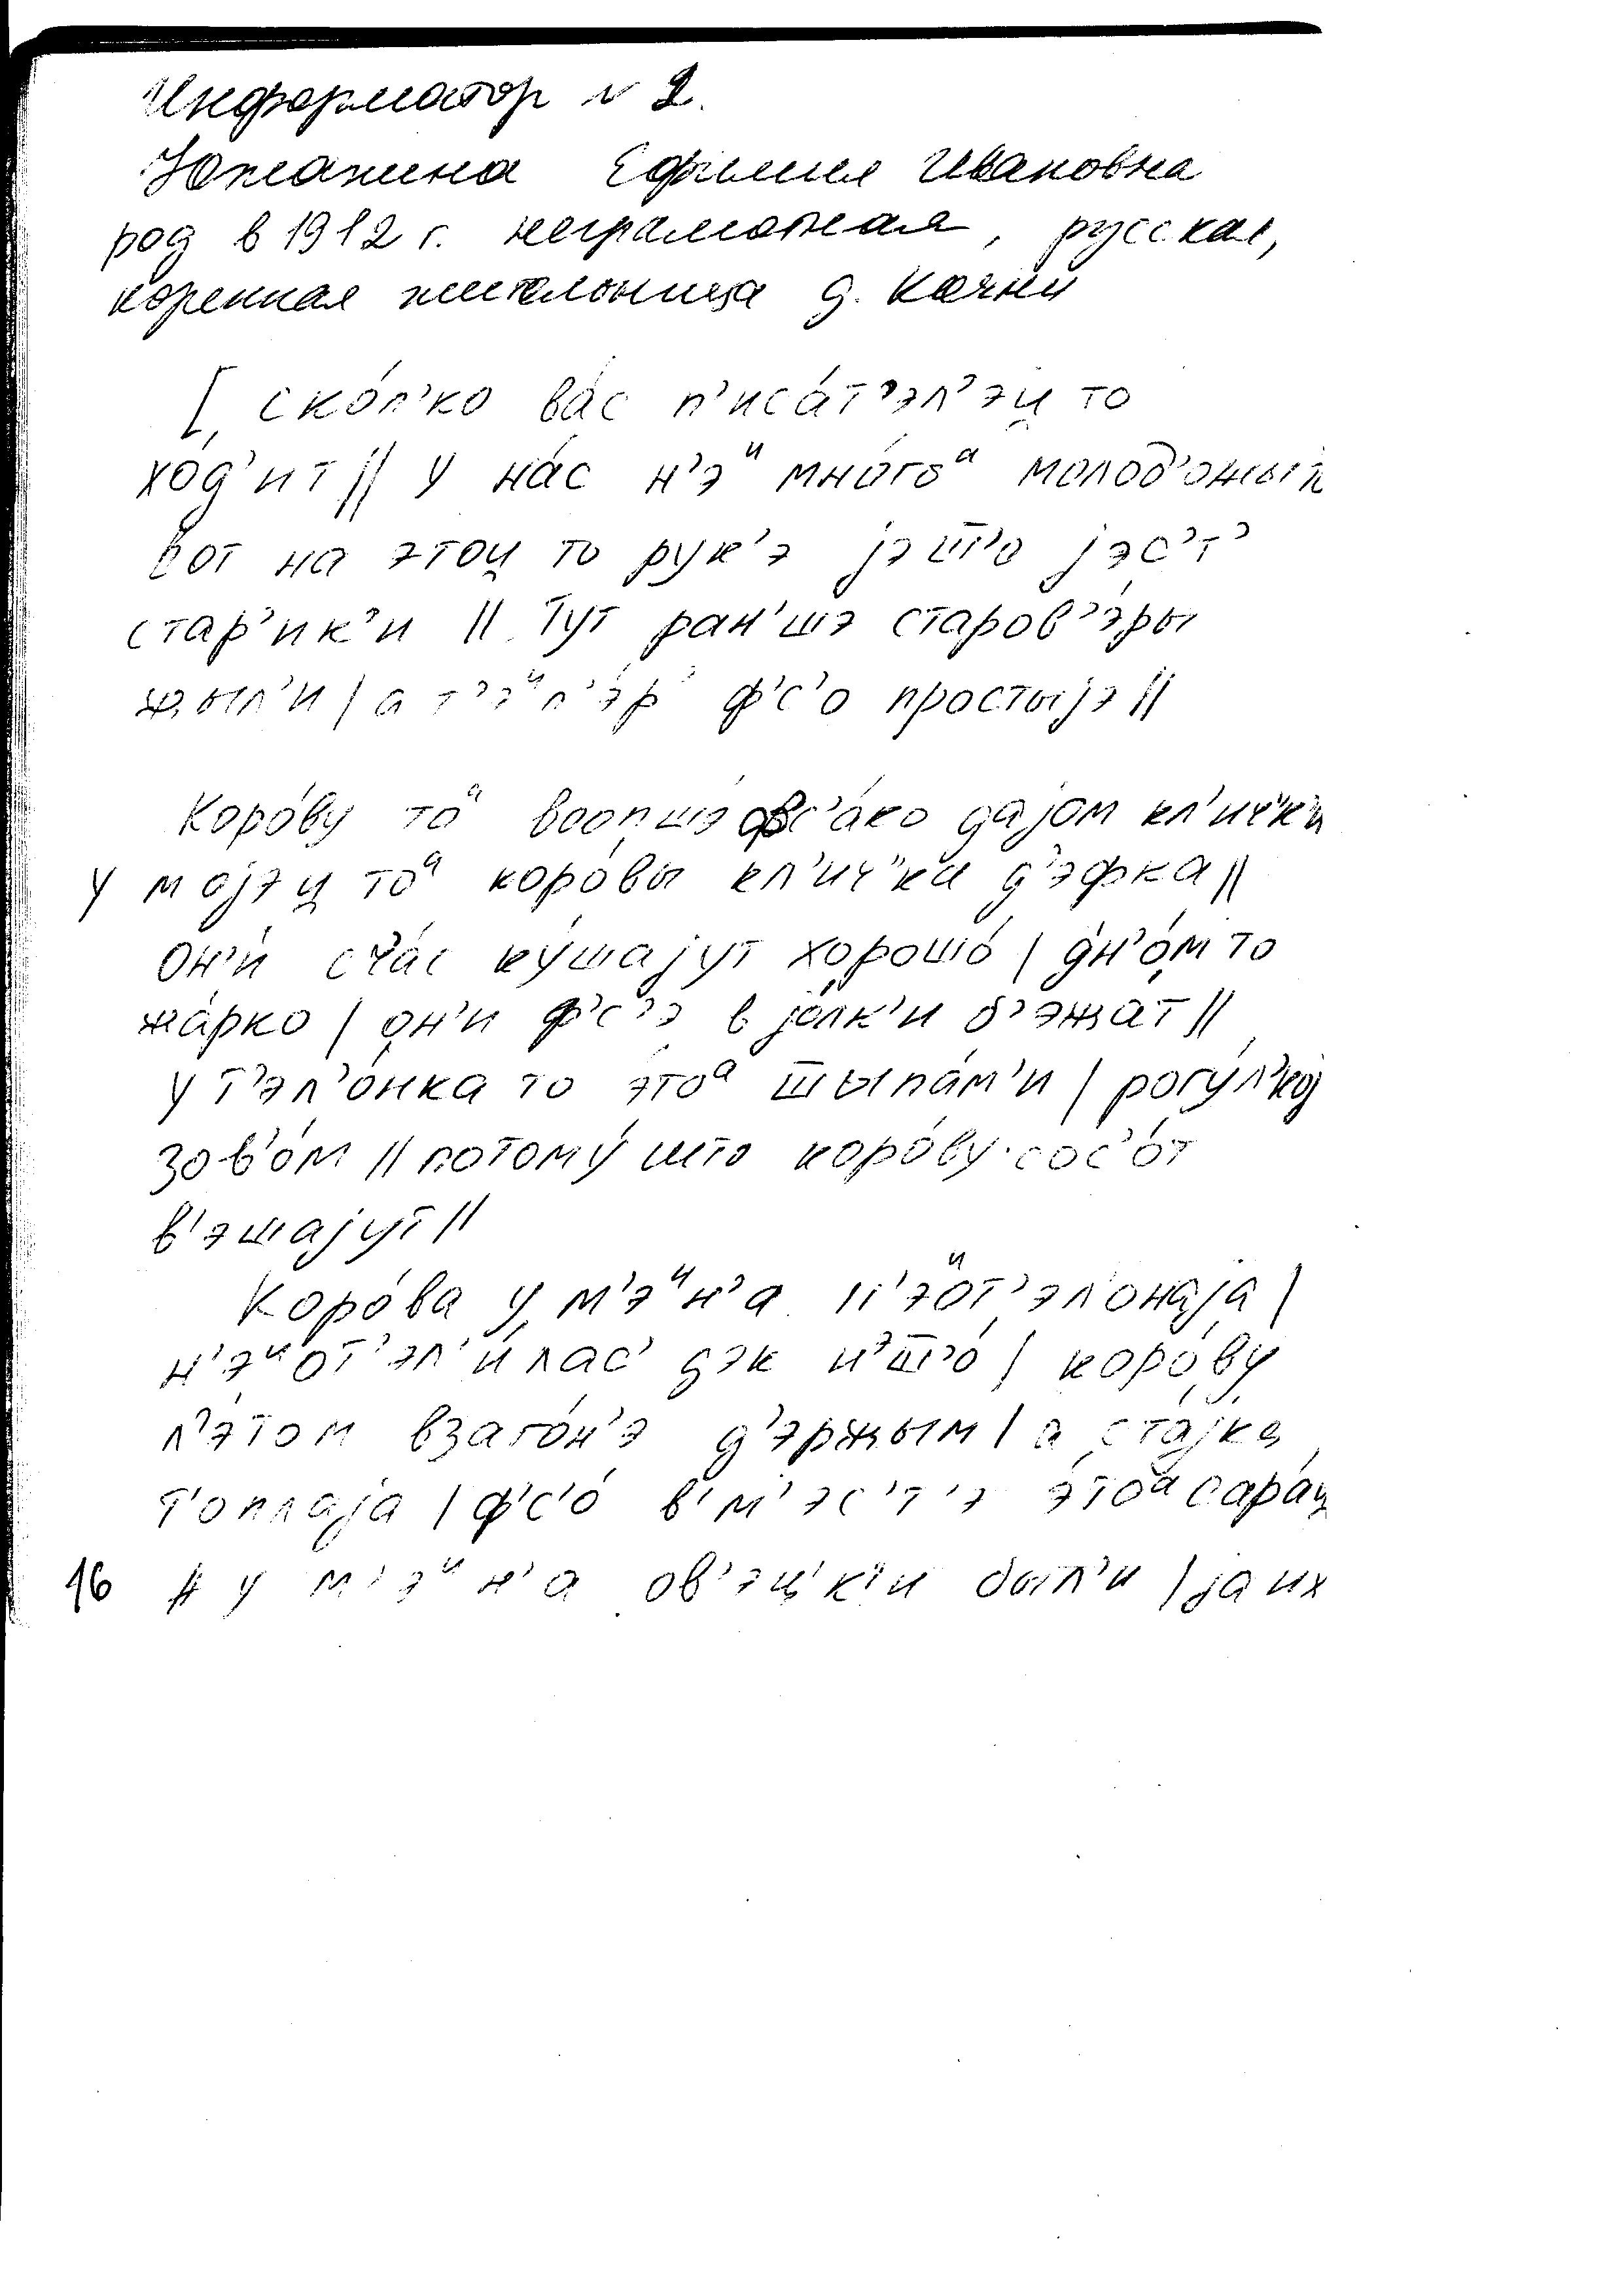 Информатор № 2.
Южанина Ефимия Ивановна
род в 1912 г. неграмотная, русская,
коренная жительница д. Качни
[ ско́л’ко ва́с п’иса́т’эл’эц то
хо́д’ит || у на́с н’эᶦᶦ мно́гоᵃ молод’ожы
вот на этоц то рук’э jэш̅’о jэс’т’
стар’ик’и || Тут ран’шэ старов’э́ры
жыл’и | а т’эᶦᶦп’э́р’ ф’с’о простыjэ ||
Коро́ву тоᵃ воопшэ с’а́ко даjом кл’ич’к’и
у моjэц тоᵃ коро́вы кл’ич’ка д’эфка ||
Он’и́ сча́с ку́шаjут хорошо́ | дн’о́м то
жа́рко | он’и ф’с’э в jо́лк’и б’эжат ||
у т’эл’о́нка то э́тоᵃ ш̅ыпа́м’и | рогу́л’коj
зов’о́м || потому́ што коро́ву сос’о́т
в’эшаjут ||
Коро́ва у м’эᶦᶦн’а н’эᶦᶦот’эл’онаjа |
н’эᶦᶦот’эл’и́лас’ дэк и’ш̅’о́ | коро́ву
л’э́том взаго́н’э д’эржым | а стаjка
т’оплаjа | ф’с’о́ в’м’эс’т’э э́тоᵃ сара́ц
16 || у м’эᶦᶦн’а ов’эц’к’и был’и | jа их